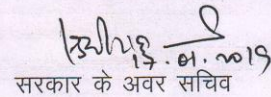 17.01.2019
सरकार के अवर सचिव